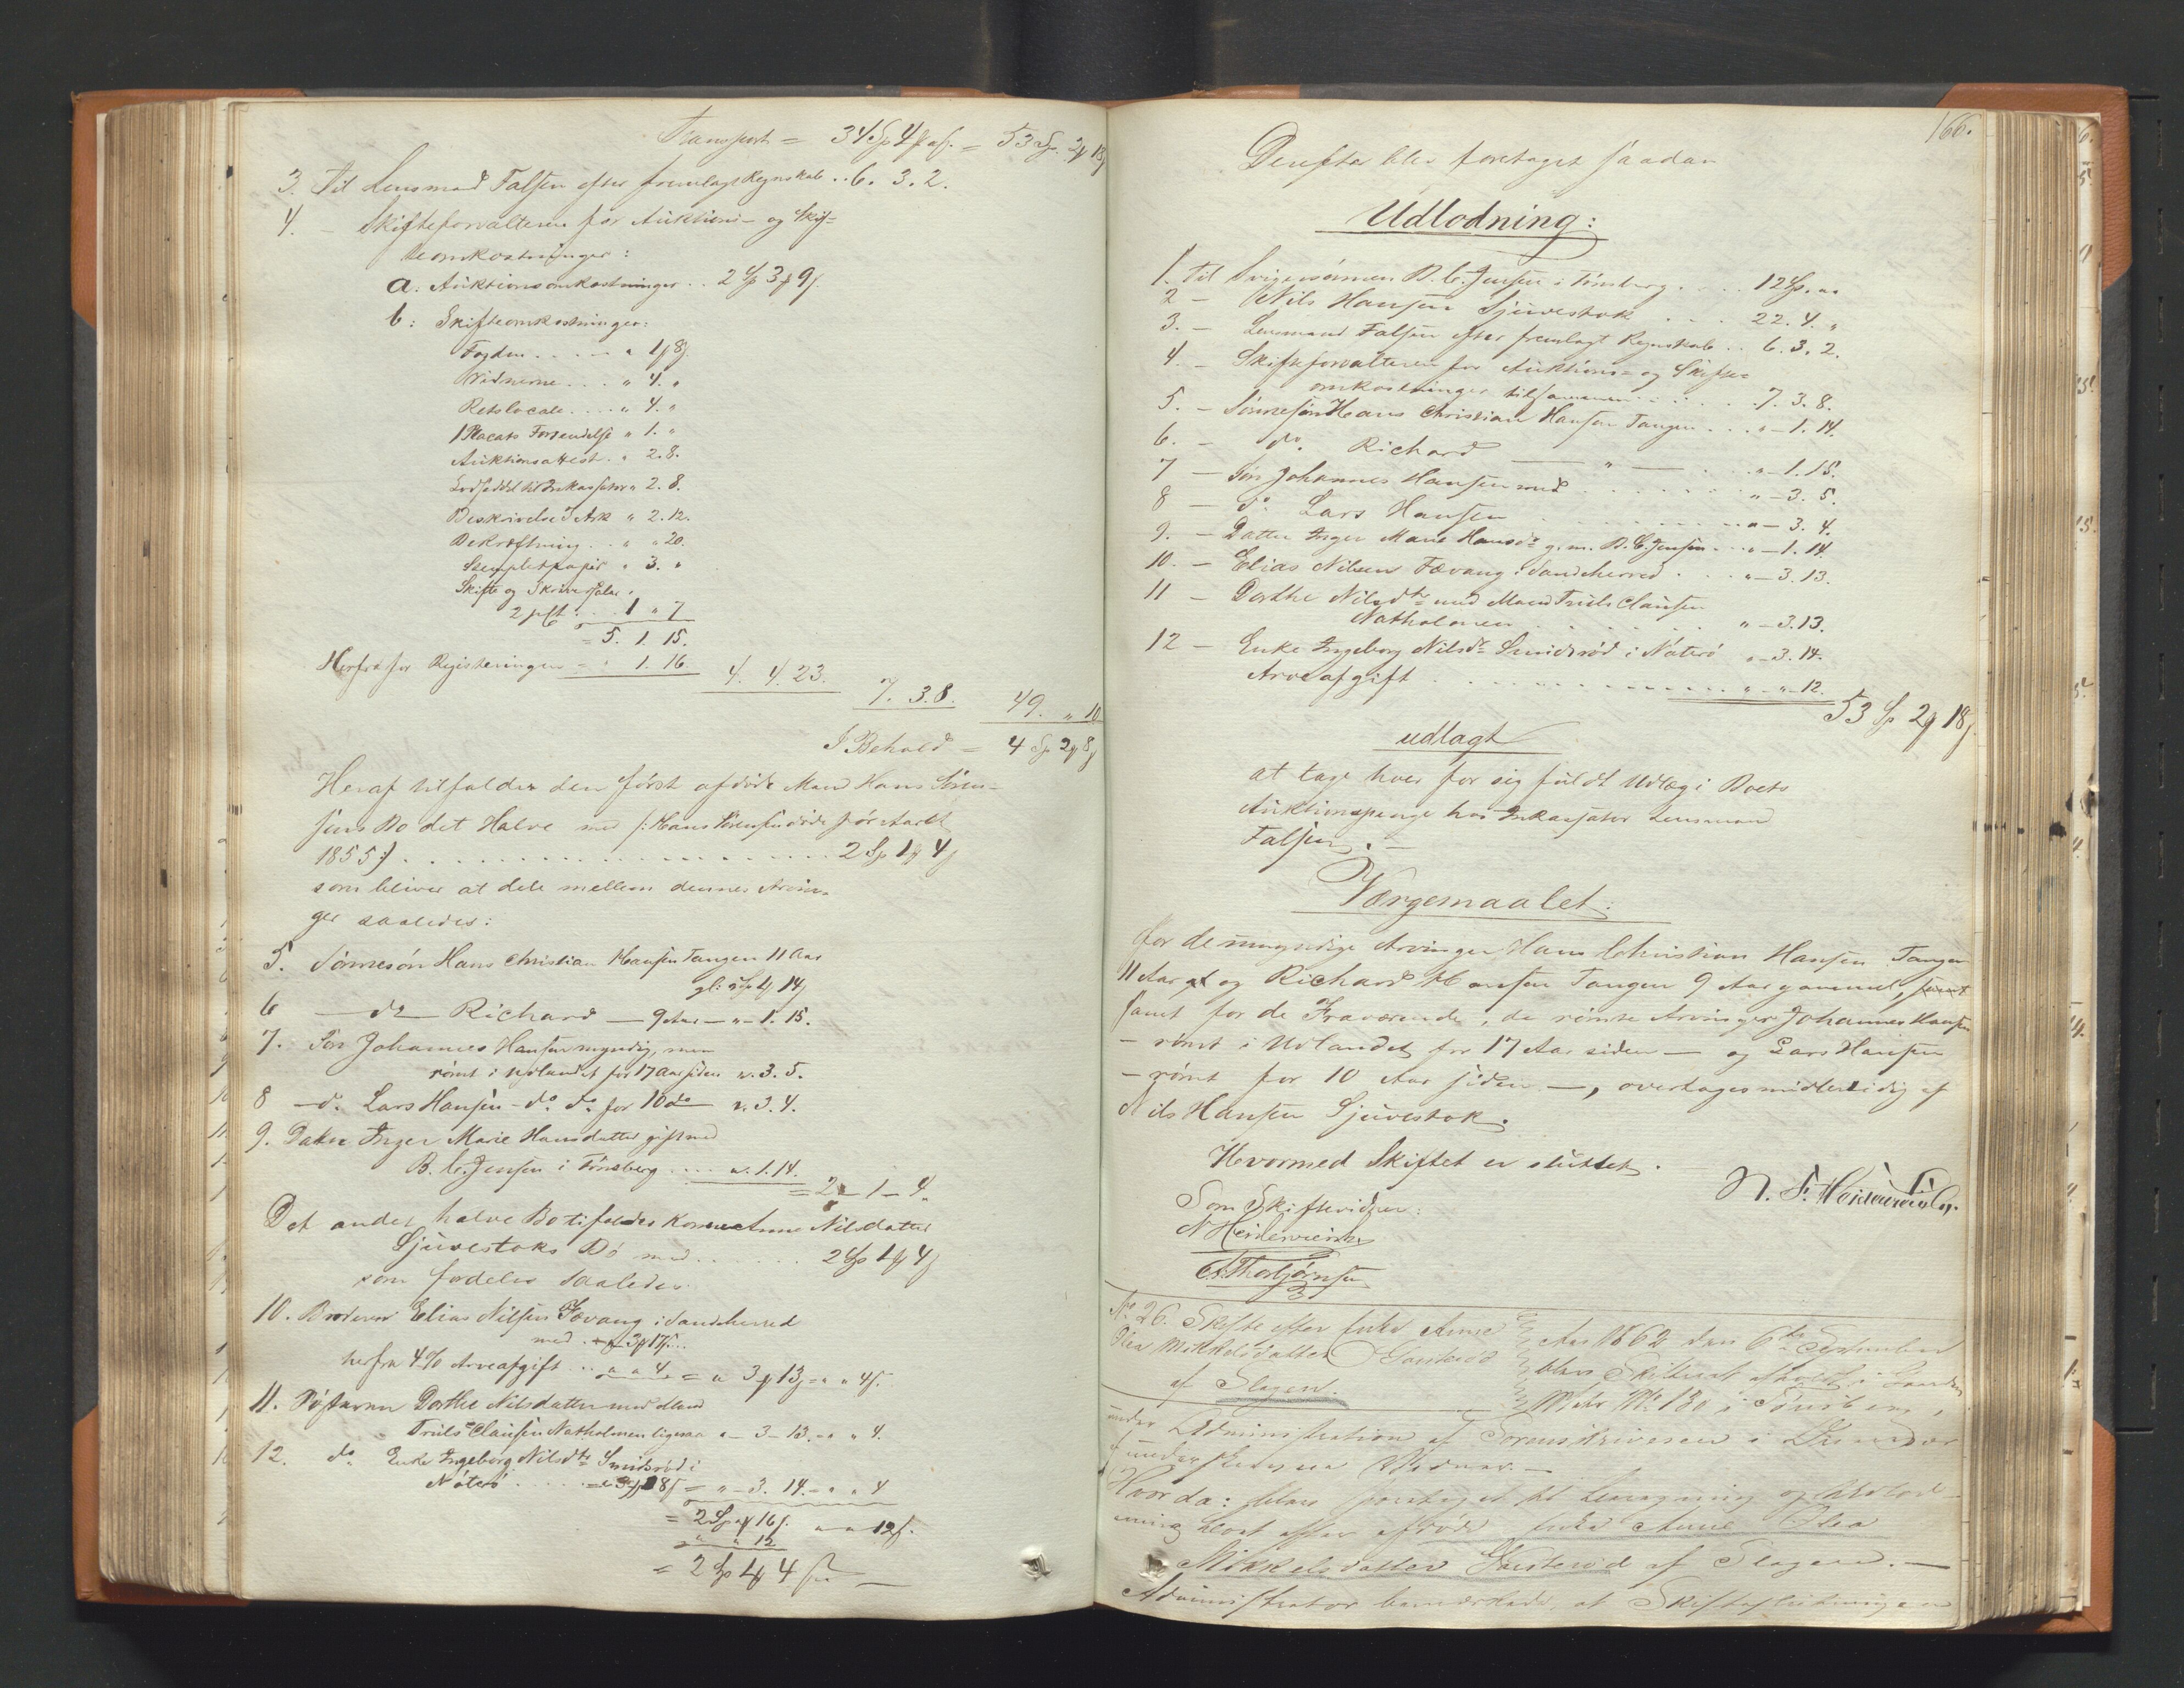 Transport = 34 Sp 4 f = 53 Sp. 2 f 18 s
3. Til Lensmand Falsen efter fremlagt Regnskab .. 6. 3. 2.
4. - Skifteforvalteren for Auktions- og Skif-
teomkostninger:
a. Auktionsomkostninger .. 2 Sp 3 f 9 s
b: Skifteomkostninger:
Fogden . . . . " 1 f 8 s
Vidnerne . . . " 4. "
Retslocale . . . . " 4. "
1 Placats Forsendelse " 1. "
Auktionsattest . " 2. 8.
Lodseddel til Inkassator " 2. 8.
Beskrivelse 7 Ark " 2. 12.
Bekræftning . . " " 20.
Stemplet papir " 3. "
Skifte og Skriversalær
2 pCt . . 1 " 7
= 5. 1. 15.
Herfra for Registeringen = " 1. 16. 4. 4. 23. 7. 3. 8. 49. " 10
I Behold = 4 Sp 2 f 8 s
Heraf tilfalder den først afdøde Mand Hans Sören-
sens Bo det Halve med /: Hans Sörensen døde for start
1855 :/ . . . . . . . . . . 2 Sp 1 f 4 s
som bliver at dele mellem dennes Arvin-
ger saaledes:
5. Sönnesön Hans Christian Hansen Tangen 11 Aar
gl: " Sp 1 f 14 s
6 — do — Richard — 9 Aar — " - 1. 15.
7. Sön Johannes Hansen myndig, men
römt i Udlandet for 17 Aar siden ". 3. 5.
8 — do Lars Hansen - do do for 10 do ". 3. 4.
9. Datter Inger Marie Hansdatter gift med
B. C. Jensen i Tönsberg .... ". 1. 14. = 2 - 1 - 4.
Det andet halve Bo tilfalder Konen Anne Nilsdatter
Sjuvestoks Bo med . . . . . . 2 Sp 1 f 4 s
som fordeles saaledes:
10. Broderen Elias Nilsen Fevang i Sandeherred
med . " 3 f 17 s ...
herfra 4 % Arveafgift ... " " 4 = " 3 f 13 s = " " 4 s.
11. Søsteren Dorthe Nilsdatter med Mand
Truls Clausen Natholmen ligesaa " - 3 - 13. - " " 4.
12. do Enke Ingeborg Nilsdtr Smidsröd i
Nöterö . . . . " 3 f 18 s = " - 3. 14. - " " 4
= 2 Sp " f 16 s. " " 12 s.
" " 12
= 2 Sp 1 f 4 s
166.
Derefter blev foretaget saadan
Udlodning:
1. Til Svigersönnen B. C. Jensen i Tönsberg . . . . 12 Sp. " "
2 - Nils Hansen Sjuvestok . . . . 22. 4. "
3. - Lensmand Falsen efter fremlagt Regnskab .. 6. 3. 2.
4 - Skifteforvalteren for Auktions- og Skifte-
omkostninger tilsammen . . . . . 7. 3. 8.
5. - Sönnesön Hans Christian Hansen Tangen . . . " - 1. 14.
6. - do Richard — " — . . " - 1. 15.
7 - Sön Johannes Hansen med . . . . . . " - 3. 5.
8 - do Lars Hansen . . . . . . . " - 3. 4.
9. - Datter Inger Marie Hansdr g. m. B. C. Jensen . . " - 1. 14.
10. - Elias Nilsen Fævang i Sandeherred . . . " - 3. 13.
11 - Dorthe Nilsdtr med Mand Truls Clausen
Natholmen . . . . . . . " - 3. 13.
12 - Enke Ingeborg Nilsdr Smidsröd i Nöterö " - 3. 14.
Arveafgift . . . . . . . . . . . " - " - 12.
53 Sp 2 f 18 s
udlagt
at tage hver for sig fuldt Udlæg i Boets
Auktionspenge hos Inkassator Lensmand
Falsen. -
Værgemaalet:
for de umyndige Arvinger Hans Christian Hansen Tangen
11 Aar gl og Richard Hansen Tangen 9 Aar gammel, samt
samt for de Fraværende, de römte Arvinger Johannes Hansen
- römt i Udlandet for 17 Aar siden — og Lars Hansen
- römt for 10 Aar siden —, overtages midlertidig af
Nils Hansen Sjuvestok.
Hvormed Skiftet er sluttet.
Som Skiftevidner:
N Heidenreich
A. Thorbjörnsen
No 26. Skifte efter Enke Anne
Olea Mikkelsdatter Gauterød
af Slagen.
Aar 1862 den 6te September
blev Skifteret afholdt i Gaarden
Matr No 130 i Tönsberg,
under Administration af Sorenskriveren i
undertegnede Vidner. —
Hvorda: blev foretaget til Slutning og Udlod-
ning Boet efter afdøde Enke Anne Olea
Mikkelsdatter Gauterød af Slagen. —
Administrator bemærkede, at Skifteslutningen